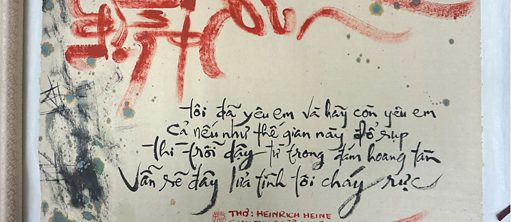 tôi đã yêu em và hãy còn yêu em
Cả nếu như thế gian này đổ sụp
thì trỗi dậy từ trong đám hoang tàn
Vẫn sẽ đầy lửa tình tôi cháy rực
THƠ: HEINRICH HEINE